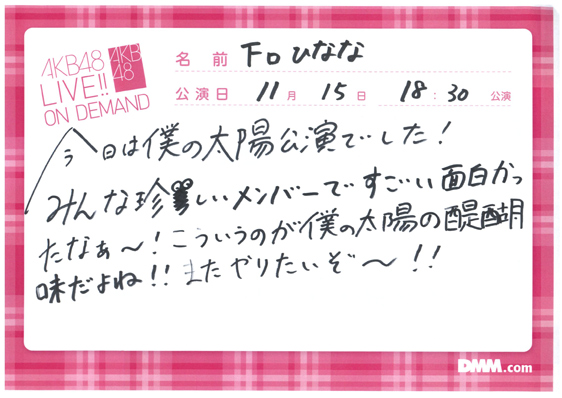 AKB48
LIVE!!
ON DEMAND
AKB
48
名前 下口ひなな
公演日 11月 15日 18:30 公演
今日は僕の太陽公演でした!
みんな珍しいメンバーですごい面白かっ
たなぁ〜!こういうのが僕の太陽の醍醐
味だよね!!またやりたいぞ〜!!
DMM.com